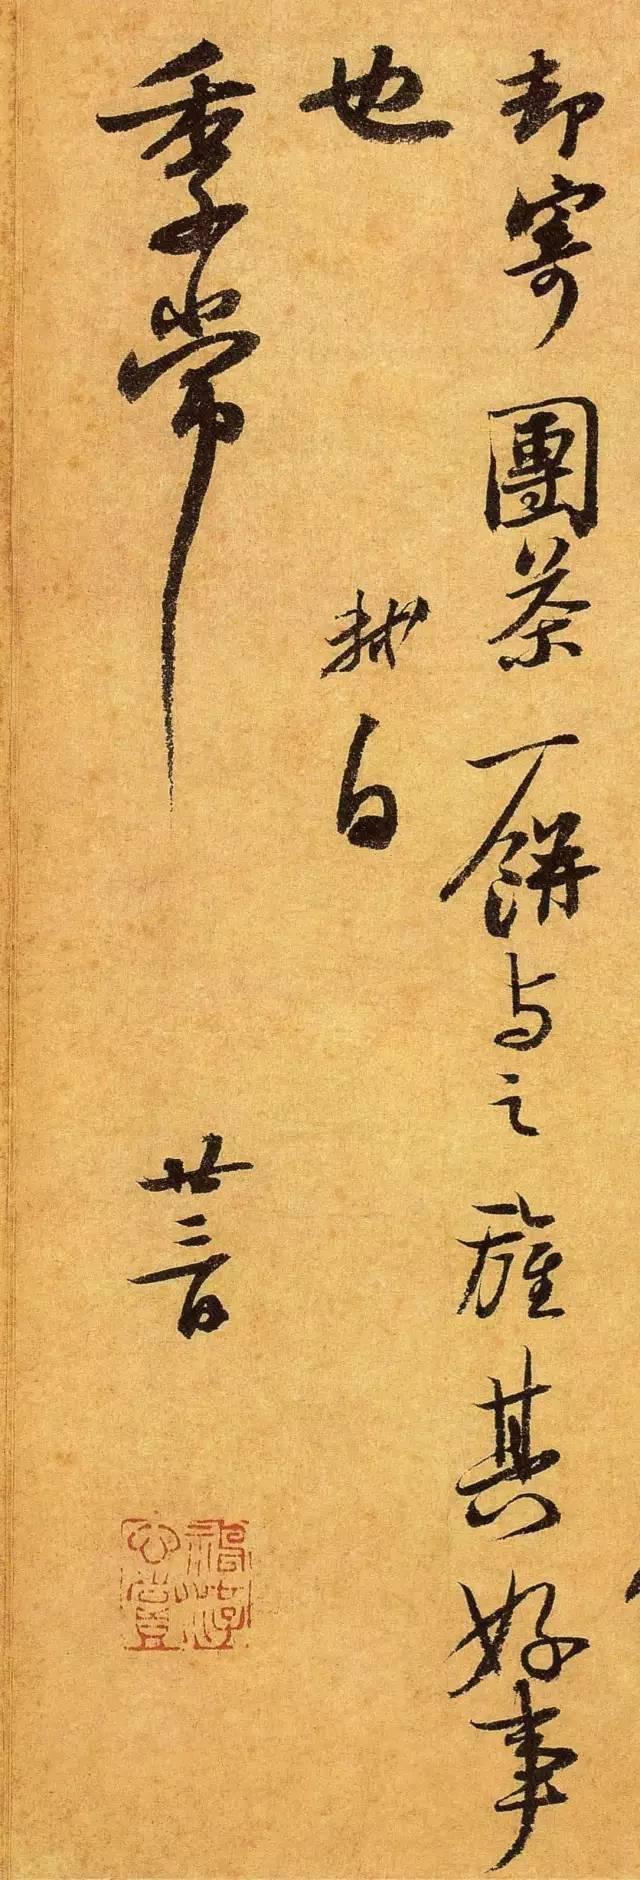 却寄團茶一餅与之旌其好事
也 軾白
季常 廿三日